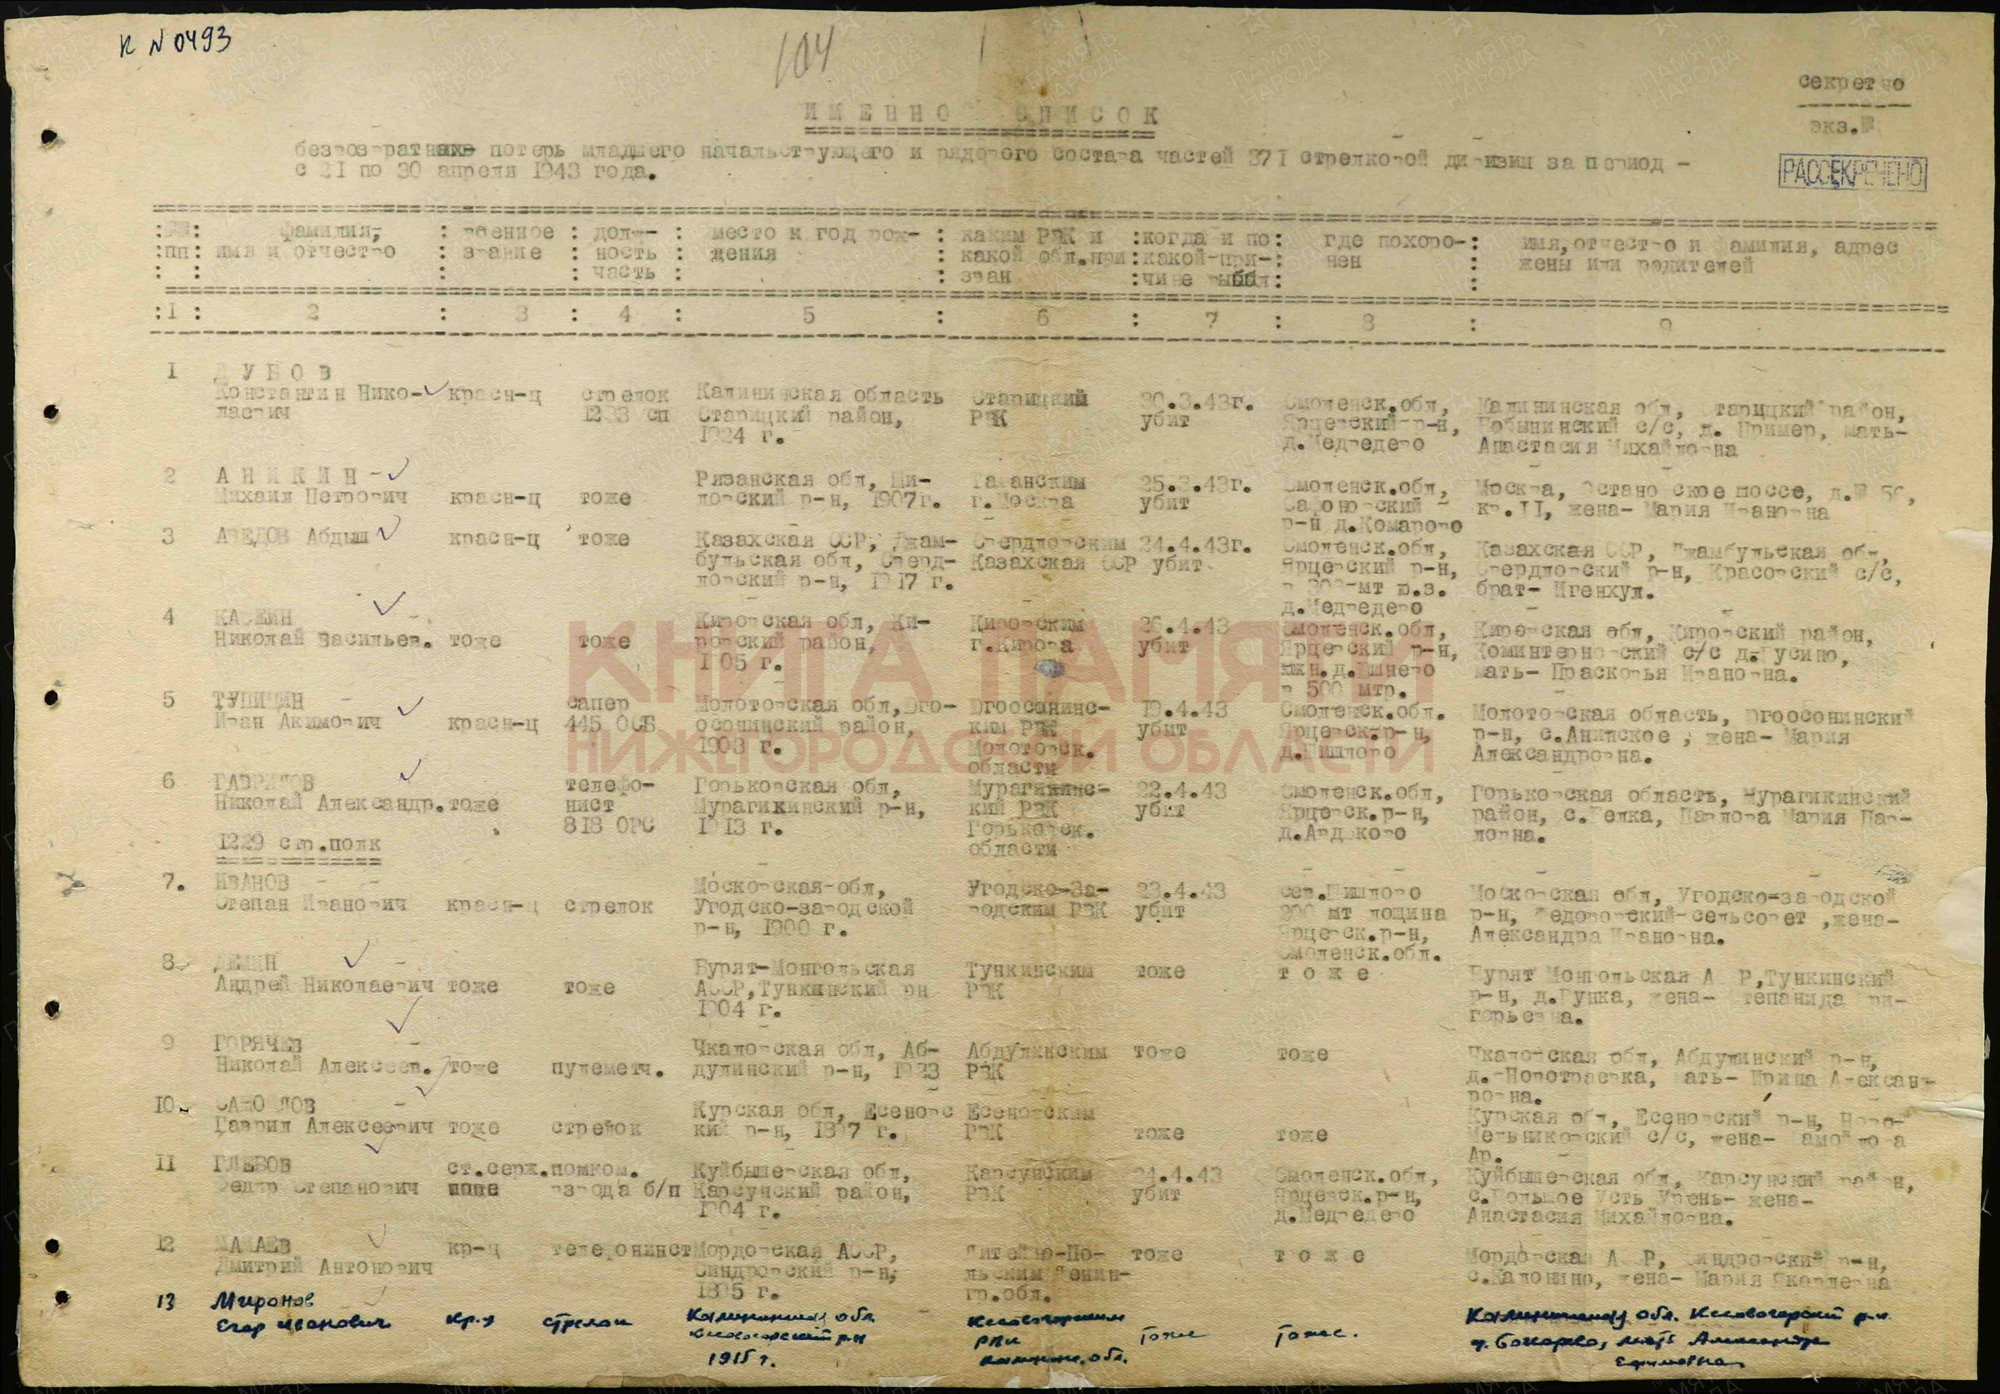 к N 0493
104
секретно
экз.№
ИМЕННОЙ СПИСОК
безвозвратных потерь младшего начальствующего и рядового состава частей 371 стрелковой дивизии за период -
с 21 по 30 апреля 1943 года.
РАССЕКРЕЧЕНО
:№№: фамилия, : военное : долж- : место и год рож- : каким РВК и :когда и по: где похоро-: имя,отчество и фамилия, адрес
:пп: имя и отчество : звание : ность : дения : какой обл.при:какой при-: нен : жены или родителей
: : : : часть : : зван :чине выбыл: :
:1 : 2 : 3 : 4 : 5 : 6 : 7 : 8 : 9
1 ДУБОВ
Константин Нико- красн-ц стрелок Калининская область Старицкий 30.3.43г. Смоленск.обл, Калининская обл, Старицкий район,
лаевич 1233 сп Старицкий район, РВК убит Ярцевский р-н, с/с, д. Пример, мать-
1924 г. д.Медведево Анастасия Михайловна
2 АНИКИН - Рязанская обл, Ши- Таганским 25.3.43г. Смоленск.обл, Москва, Останковское шоссе, д.№ 50,
Михаил Петрович красн-ц тоже ловский р-н, 1907г. г.Москва убит Сафоновский кв.11, жена- Мария Ивановна
р-н д.Комарово
3 АВЕДОВ Абдыш красн-ц тоже Казахская ССР, Джам- Свердловским 24.4.43г. Смоленск.обл, Казахская ССР, Джамбульская обл,
бульская обл, Сверд- Казахская ССР убит Ярцевский р-н, Свердловский р-н, Красовский с/с,
ловский р-н, 1917 г. в 300 мт ю.з. брат- Игенхул.
д.Медведево
4 Кировская обл, Ки- Кировским 26.4.43 Смоленск.обл, Кировская обл, Кировский район,
Николай Васильев. тоже тоже ровский район, г.Кирова убит Ярцевский р-н, Коминтерновский с/с д.Гусино,
1905 г. южн.д. мать- Прасковья Ивановна.
в 500 мтр.
5 ТУПИЦИН сапер Молотовская обл,Юго- Югоосонинс- 19.4.43 Смоленск.обл. Молотовская область, Югоосонинский
Иван Акимович красн-ц 445 ОСБ осонинский район, ким РВК убит Ярцевск.р-н, р-н, с.Анипское, жена- Мария
1903 г. Молотовск. д.Пишлово Александровна.
области
6 ГАВРИЛОВ телефо- Горьковская обл, Мурагикинс- 22.4.43 Смоленск.обл, Горьковская область, Мурагикинский
Николай Александр. тоже нист Мурагикинский р-н, кий РВК убит Ярцевск.р-н, район, с.Белка, Павлова Мария Пав-
818 ОРС 1913 г. Горьковск. ловна.
1229 стр.полк области
7. ИВАНОВ Московская обл, Угодско-За- 23.4.43 сев.Пишлово Московская обл, Угодско-заводской
Степан Иванович красн-ц стрелок Угодско-заводской водским РВК убит 200 мт лощина р-н, Федоровский сельсовет ,жена-
р-н, 1900 г. Ярцевск.р-н, Александра Ивановна.
Смоленск.обл.
8 ДЕМИН Бурят-Монгольская Тункинским тоже тоже Бурят Монгольская АССР,Тункинский
Андрей Николаевич тоже тоже АССР,Тункинский рн РВК р-н, д.Гушка, жена- Степанида Гри-
1904 г. горьевна.
9 ГОРЯЧЕВ Чкаловская обл, Аб- Абдулинским тоже тоже Чкаловская обл, Абдулинский р-н,
Николай Алексеев. тоже пулеметч. дулинский р-н, 1923 РВК д.-Новотраевка, мать- Ирина Александ-
ровна.
10 САМОЙЛОВ Курская обл, Есеновс Есеновским Курская обл, Есеновский р-н, Ново-
Гаврил Алексеевич тоже стрелок кий р-н, 1897 г. РВК тоже тоже Мельниковский с/с, жена- Самойлова
Ар.
11 ГЛЕБОВ ст.серж.помком. Куйбышевская обл, Карсунским 24.4.43 Смоленск.обл, Куйбышевская обл, Карсунский район,
Федор Степанович взвода б/п Карсунский район, РВК убит Ярцевск.р-н, с.Большое Усть Урень- жена-
1904 г. д.Медведево Анастасия Михайловна.
12 МАМАЕВ кр-ц телефонист Мордовская АССР, Литейно-По- тоже тоже Мордовская АССР, Синдровский р-н,
Дмитрий Антонович Синдровский р-н, льским Ленин- с.Калонино, жена- Мария Яковлевна
1895 г. гр.обл.
13 Миронов
Егор Иванович кр-ц стрелок Калининская обл. Кесовогорским тоже тоже. Калининская обл. Кесовогорский р-н.
Кесовогорский р-н РВК д. Бокарево, мать Александра
1915 г. калинин. обл. Ефимовна
КНИГА ПАМЯТИ
НИЖЕГОРОДСКОЙ ОБЛАСТИ